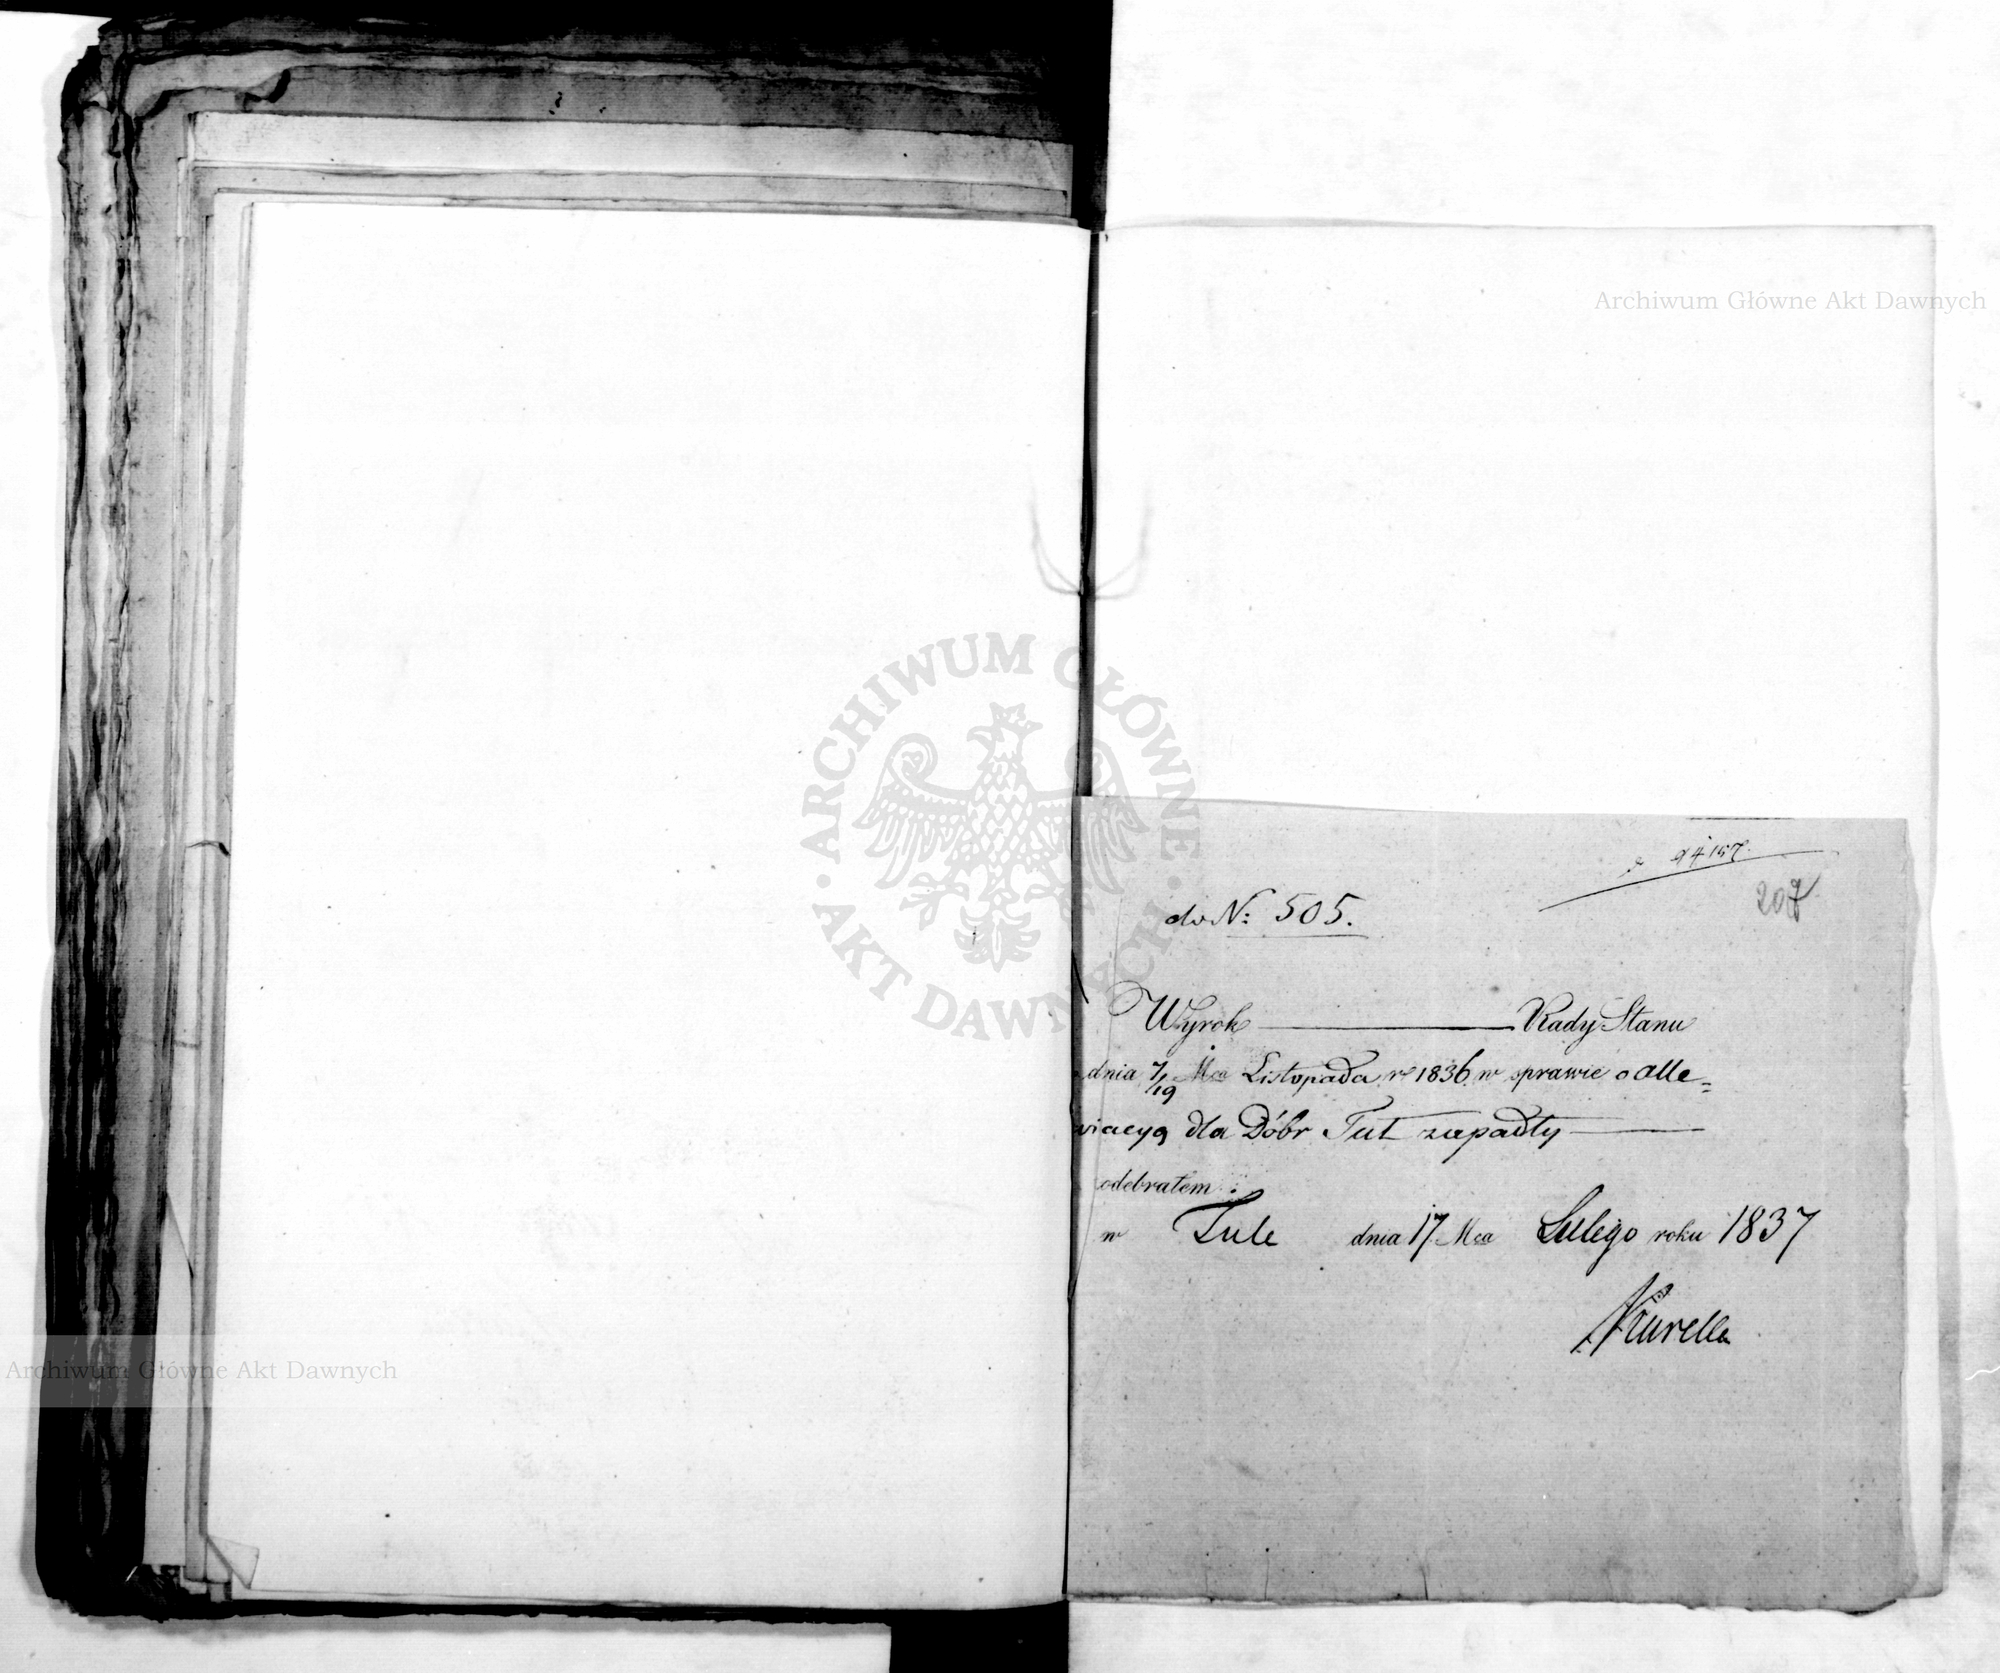 Archiwum Główne Akt Dawnych
ARCHIWUM GŁÓWNE AKT DAWNYCH
94157
207
do N: 505.
Wyrok Rady Stanu
dnia 7/19 Mca Listopada r 1836 w sprawie o alle=
viacyą dla Dóbr Tut zapadły
odebrałem.
w Tule dnia 17 Mca Lutego roku 1837
Kurella
Archiwum Główne Akt Dawnych